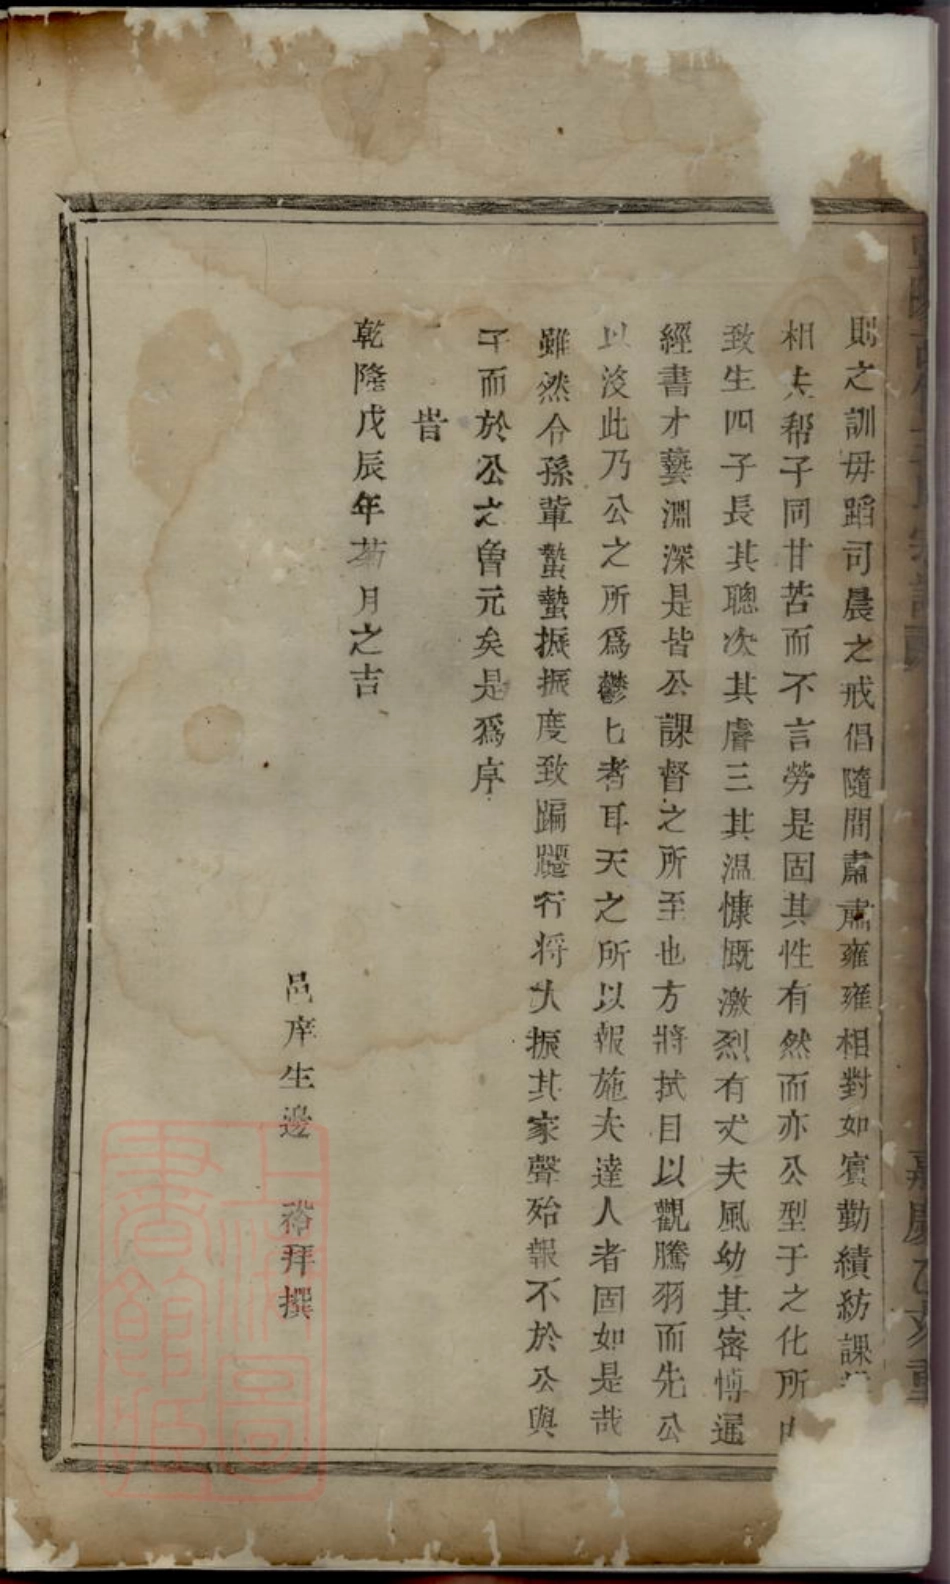 嘉慶乙亥重
則之訓毋蹈司晨之戒倡隨間肅肅雍雍相對如賓勤績紡課
相夫帮子同甘苦而不言勞是固其性有然而亦公型于之化所
致生四子長其聰次其睿三其温慷慨激烈有丈夫風幼其密博通
經書才藝淵深是皆公課督之所至也方將拭目以觀騰羽而先公
以没此乃公之所爲鬱匕者耳天之所以報施夫達人者固如是哉
雖然令孫輩蟄蟄振振度致蹁躚行将大振其家聲殆報不於公與
子而於公之曾元矣是爲序
旹
乾隆戊辰年菊月之吉
邑庠生邊 裕拜撰
上海圖書館藏